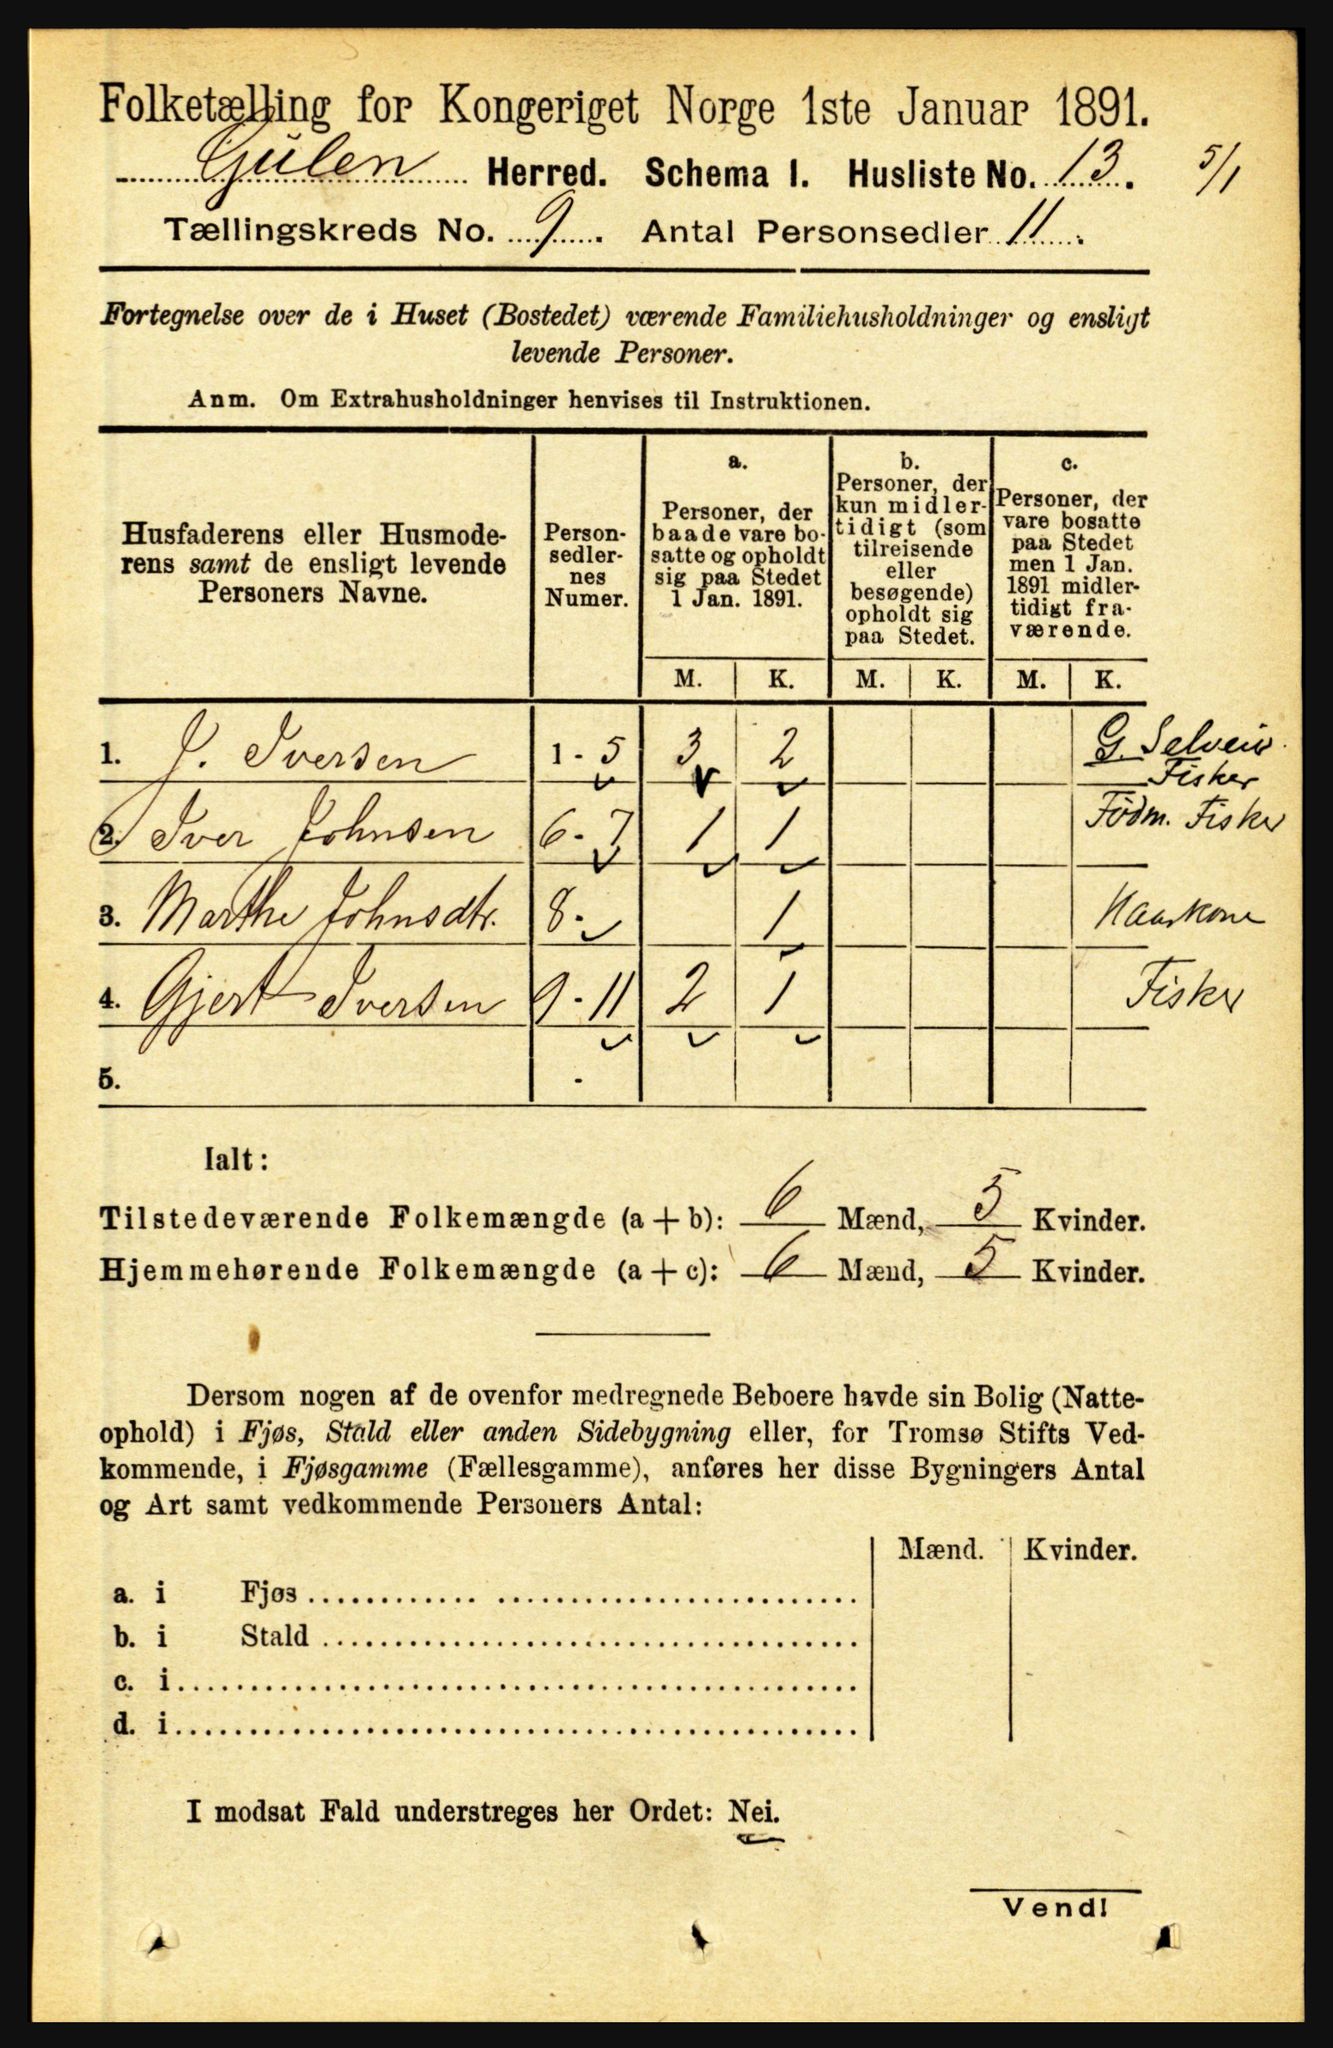 Folketælling for Kongeriget Norge 1ste Januar 1891.
Gulen Herred. Schema I. Husliste No. 13. 5/1
Tællingskreds No. 9. Antal Personsedler 11.
Fortegnelse over de i Huset (Bostedet) værende Familiehusholdninger og ensligt
levende Personer.
Anm. Om Extrahusholdninger henvises til Instruktionen.
Husfaderens eller Husmode-
rens samt de ensligt levende
Personers Navne.
Person-
sedler-
nes
Numer.
a.
Personer, der
baade vare bo-
satte og opholdt
sig paa Stedet
1 Jan. 1891.
b.
Personer, der
kun midler-
tidigt (som
tilreisende
eller
besøgende)
opholdt sig
paa Stedet.
c.
Personer, der
vare bosatte
paa Stedet
men 1 Jan.
1891 midler-
tidigt fra-
værende.
M. K. M. K. M. K.
1. J. Iversen 1 - 5 3 2 G. Selveier
Fisker
2. Iver Johnsen 6 - 7 1 1 Födm. Fisker
3. Marthe Johnsdtr. 8 - 1 Kaarkone
4. Gjert Iversen 9 - 11 2 1 Fisker
5. -
Ialt:
Tilstedeværende Folkemængde (a + b): 6 Mænd, 5 Kvinder.
Hjemmehørende Folkemængde (a + c): 6 Mænd, 5 Kvinder.
Dersom nogen af de ovenfor medregnede Beboere havde sin Bolig (Natte-
ophold) i Fjøs, Stald eller anden Sidebygning eller, for Tromsø Stifts Ved-
kommende, i Fjøsgamme (Fællesgamme), anføres her disse Bygningers Antal
og Art samt vedkommende Personers Antal:
Mænd. Kvinder.
a. i Fjøs
b. i Stald
c. i
d. i
I modsat Fald understreges her Ordet: Nei.
Vend!